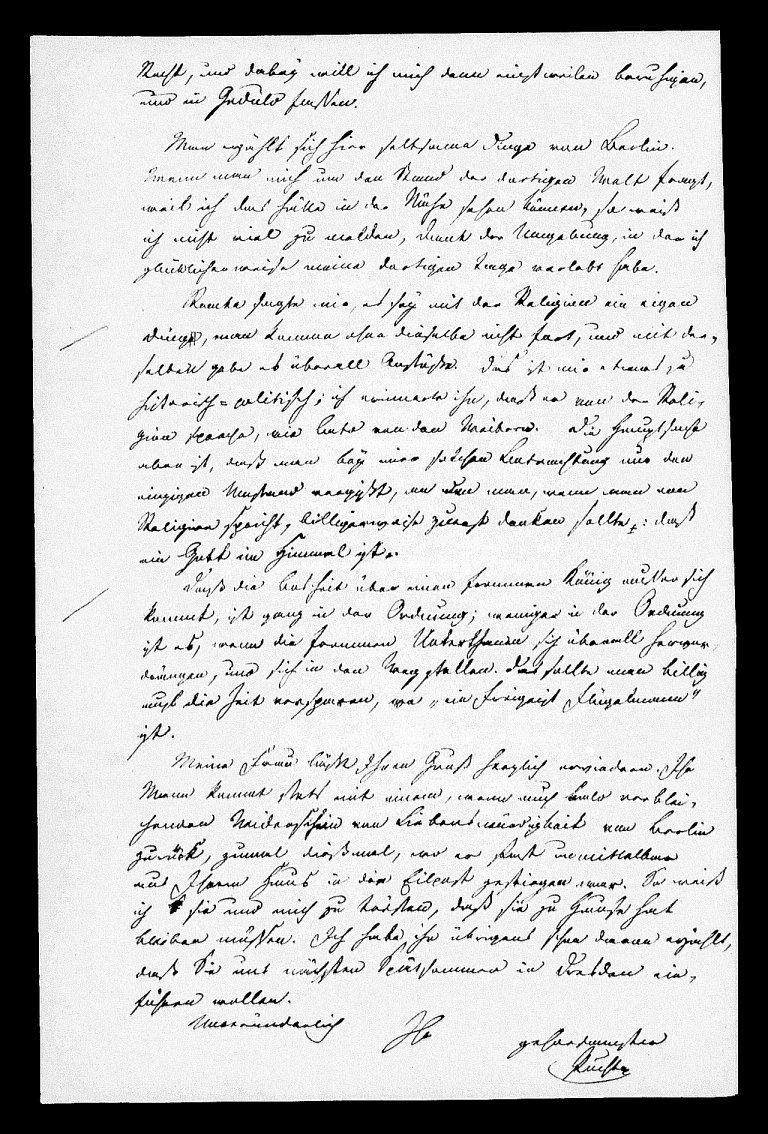 Recht, und dabey will ich mich denn einstweilen beruhigen,
und in Geduld fassen.
Man erzählt sich hier seltsame Dinge von Berlin.
Wenn man mich um den Stand der dortigen Welt fragt,
weil ich das hätte in der Nähe sehen können, so weiß
ich nicht viel zu melden, Dank der Umgebung, in der ich
glücklicherweise meine dortigen Tage verlebt habe.
sagte mir, es sey mit der Religion ein eigen
Ding, man komme ohne dieselbe nicht fort, und mit der-
selben gebe es überall Anstöße. Das ist mir etwas zu
historisch-politisch; ich erinnerte ihn, daß er von der Reli-
gion spreche, wie Cato von den Weibern. Die Hauptsache
aber ist, daß man bey einer solchen Betrachtung nur den
einzigen Umstand vergißt, an den man, wenn man von
Religion spricht, billigerweise zuerst denken sollte: daß
ein Gott im Himmel ist.
Daß die Bosheit über einen frommen König außer sich
kommt, ist ganz in der Ordnung; weniger in der Ordnung
ist es, wenn die frommen Unterthanen sich überall hervor-
drängen, und sich in den Weg stellen. Das sollte man billig
auf die Zeit versparen, wo „ein Freigeist Flügelmann"
ist.
Meine Frau läßt Ihren Gruß herzlich erwiedern. Ihr
Mann kommt stets mit einem, wenn auch bald verblei-
chenden Widerschein von Liebenswürdigkeit von Berlin
zurück, zumal dießmal, wo er fast unmittelbar
aus Ihrem Haus in die Eilpost gestiegen war. So weiß
ich sie und mich zu trösten, daß sie zu Hause hat
bleiben müssen. Ich habe ihr übrigens schon davon erzählt,
daß Sie uns nächsten Spätsommer in Dresden ein-
führen wollen.
Unveränderlich Ihr gehorsamster
Puchta